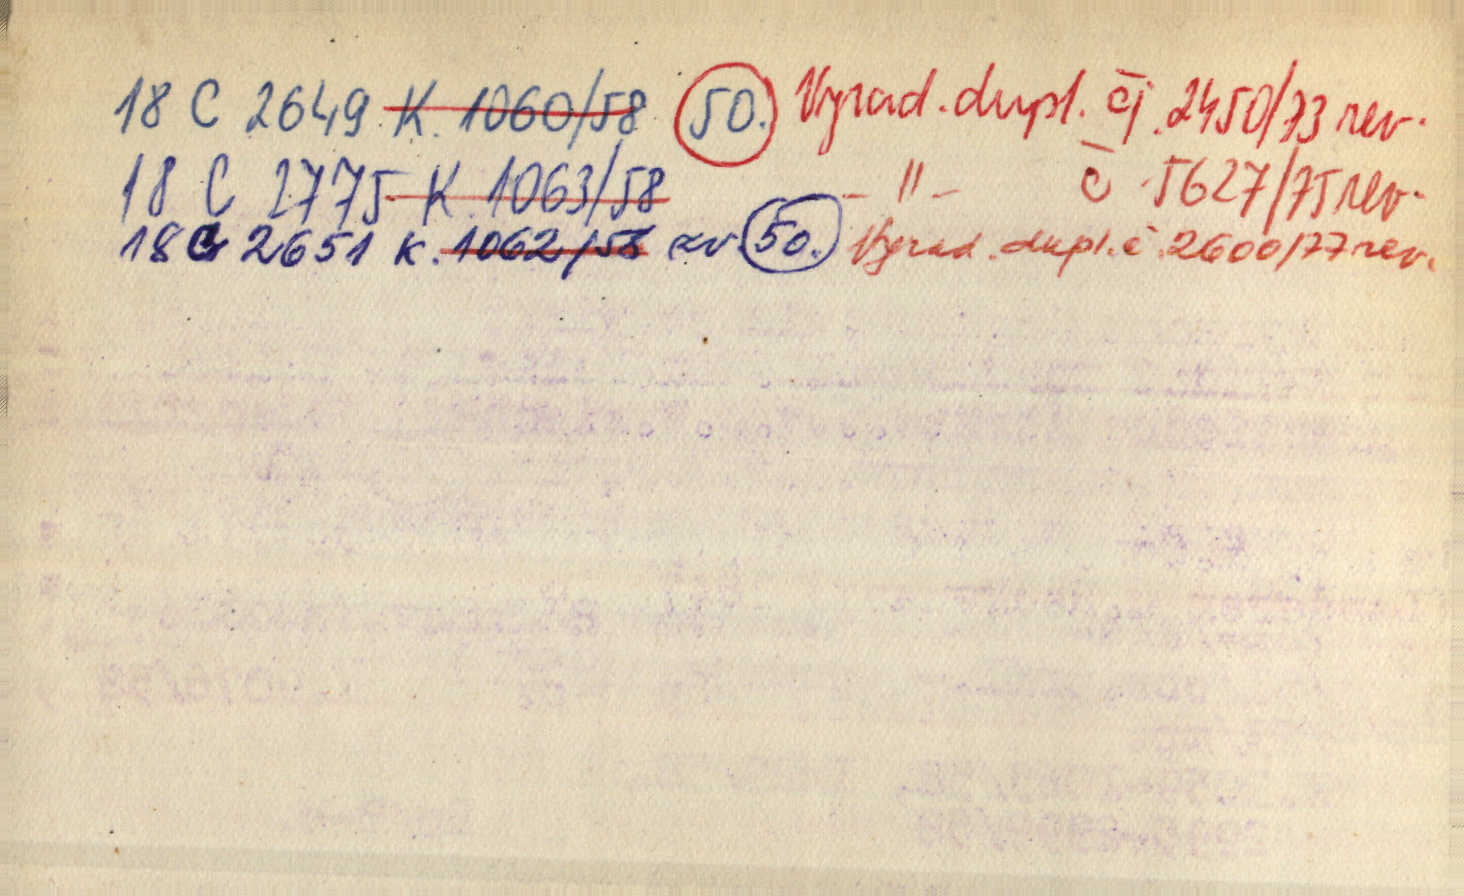 18 C 2649 K. 1060/58 50. Vyřad. dupl. čj. 2450/73 rev.
18 C 2775 K. 1063/58 - " - č. 5627/75 rev.
18 C 2651 K. 1062/58 sv. 50. Vyřad. dupl. č. 2600/77 rev.